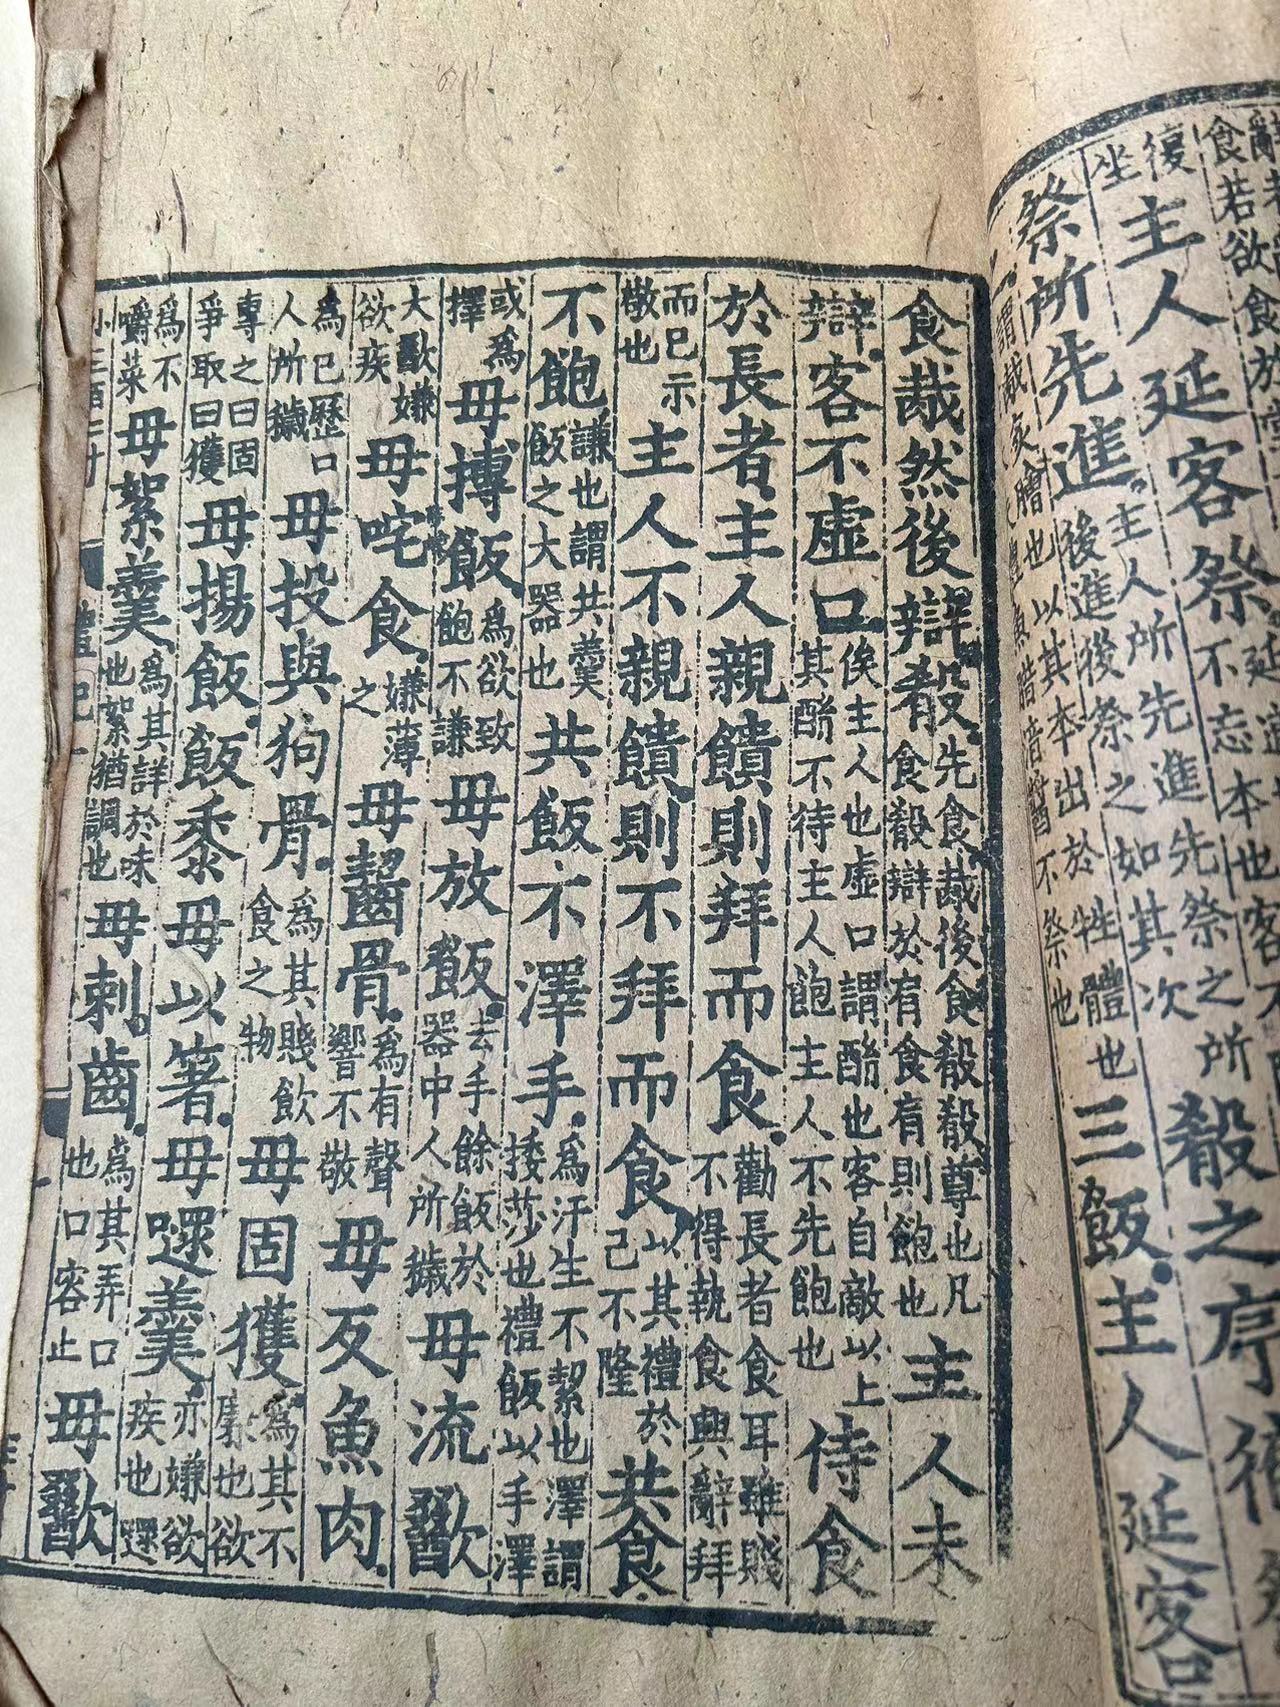 復坐主人延客祭不忘本也客
祭所先進主人所先進先祭之所後進後祭之如其次殽之序
謂胾炙膾也以其本出於牲體也魚腊湆醬不祭也三飯主人延客
食胾然後辯殽先食胾後食殽殽尊也凡食殽辯於肩食肩則飽也主人未
辯客不虛口俟主人也虛口謂酳也客自敵以上其酳不待主人飽主人不先飽也侍食
於長者主人親饋則拜而食勸長者食耳雖賤不得執食興辭拜
而已示敬也主人不親饋則不拜而食以其禮於己不隆共食
不飽謙也謂共羹飯之大器也共飯不澤手為汗生不絜也澤謂捼莎也禮飯以手澤
或為擇毋摶飯為欲致飽不謙毋放飯去手餘飯於器中人所穢毋流歠
大歠嫌欲疾毋咤食嫌薄之毋齧骨為有聲響不敬毋反魚肉
為已歷口人所穢毋投與狗骨為其賤飲食之物毋固獲為其不廉也欲
專之曰固爭取曰獲毋揚飯飯黍毋以箸毋嚃羹亦嫌欲疾也嚃
為不嚼菜毋絮羹為其詳於味也絮猶調也毋刺齒為其弄口也口容止毋歠